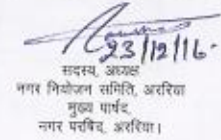 23/12/16
सदस्य, अध्यक्ष
नगर नियोजन समिति, अररिया
मुख्य पार्षद,
नगर परिषद, अररिया।